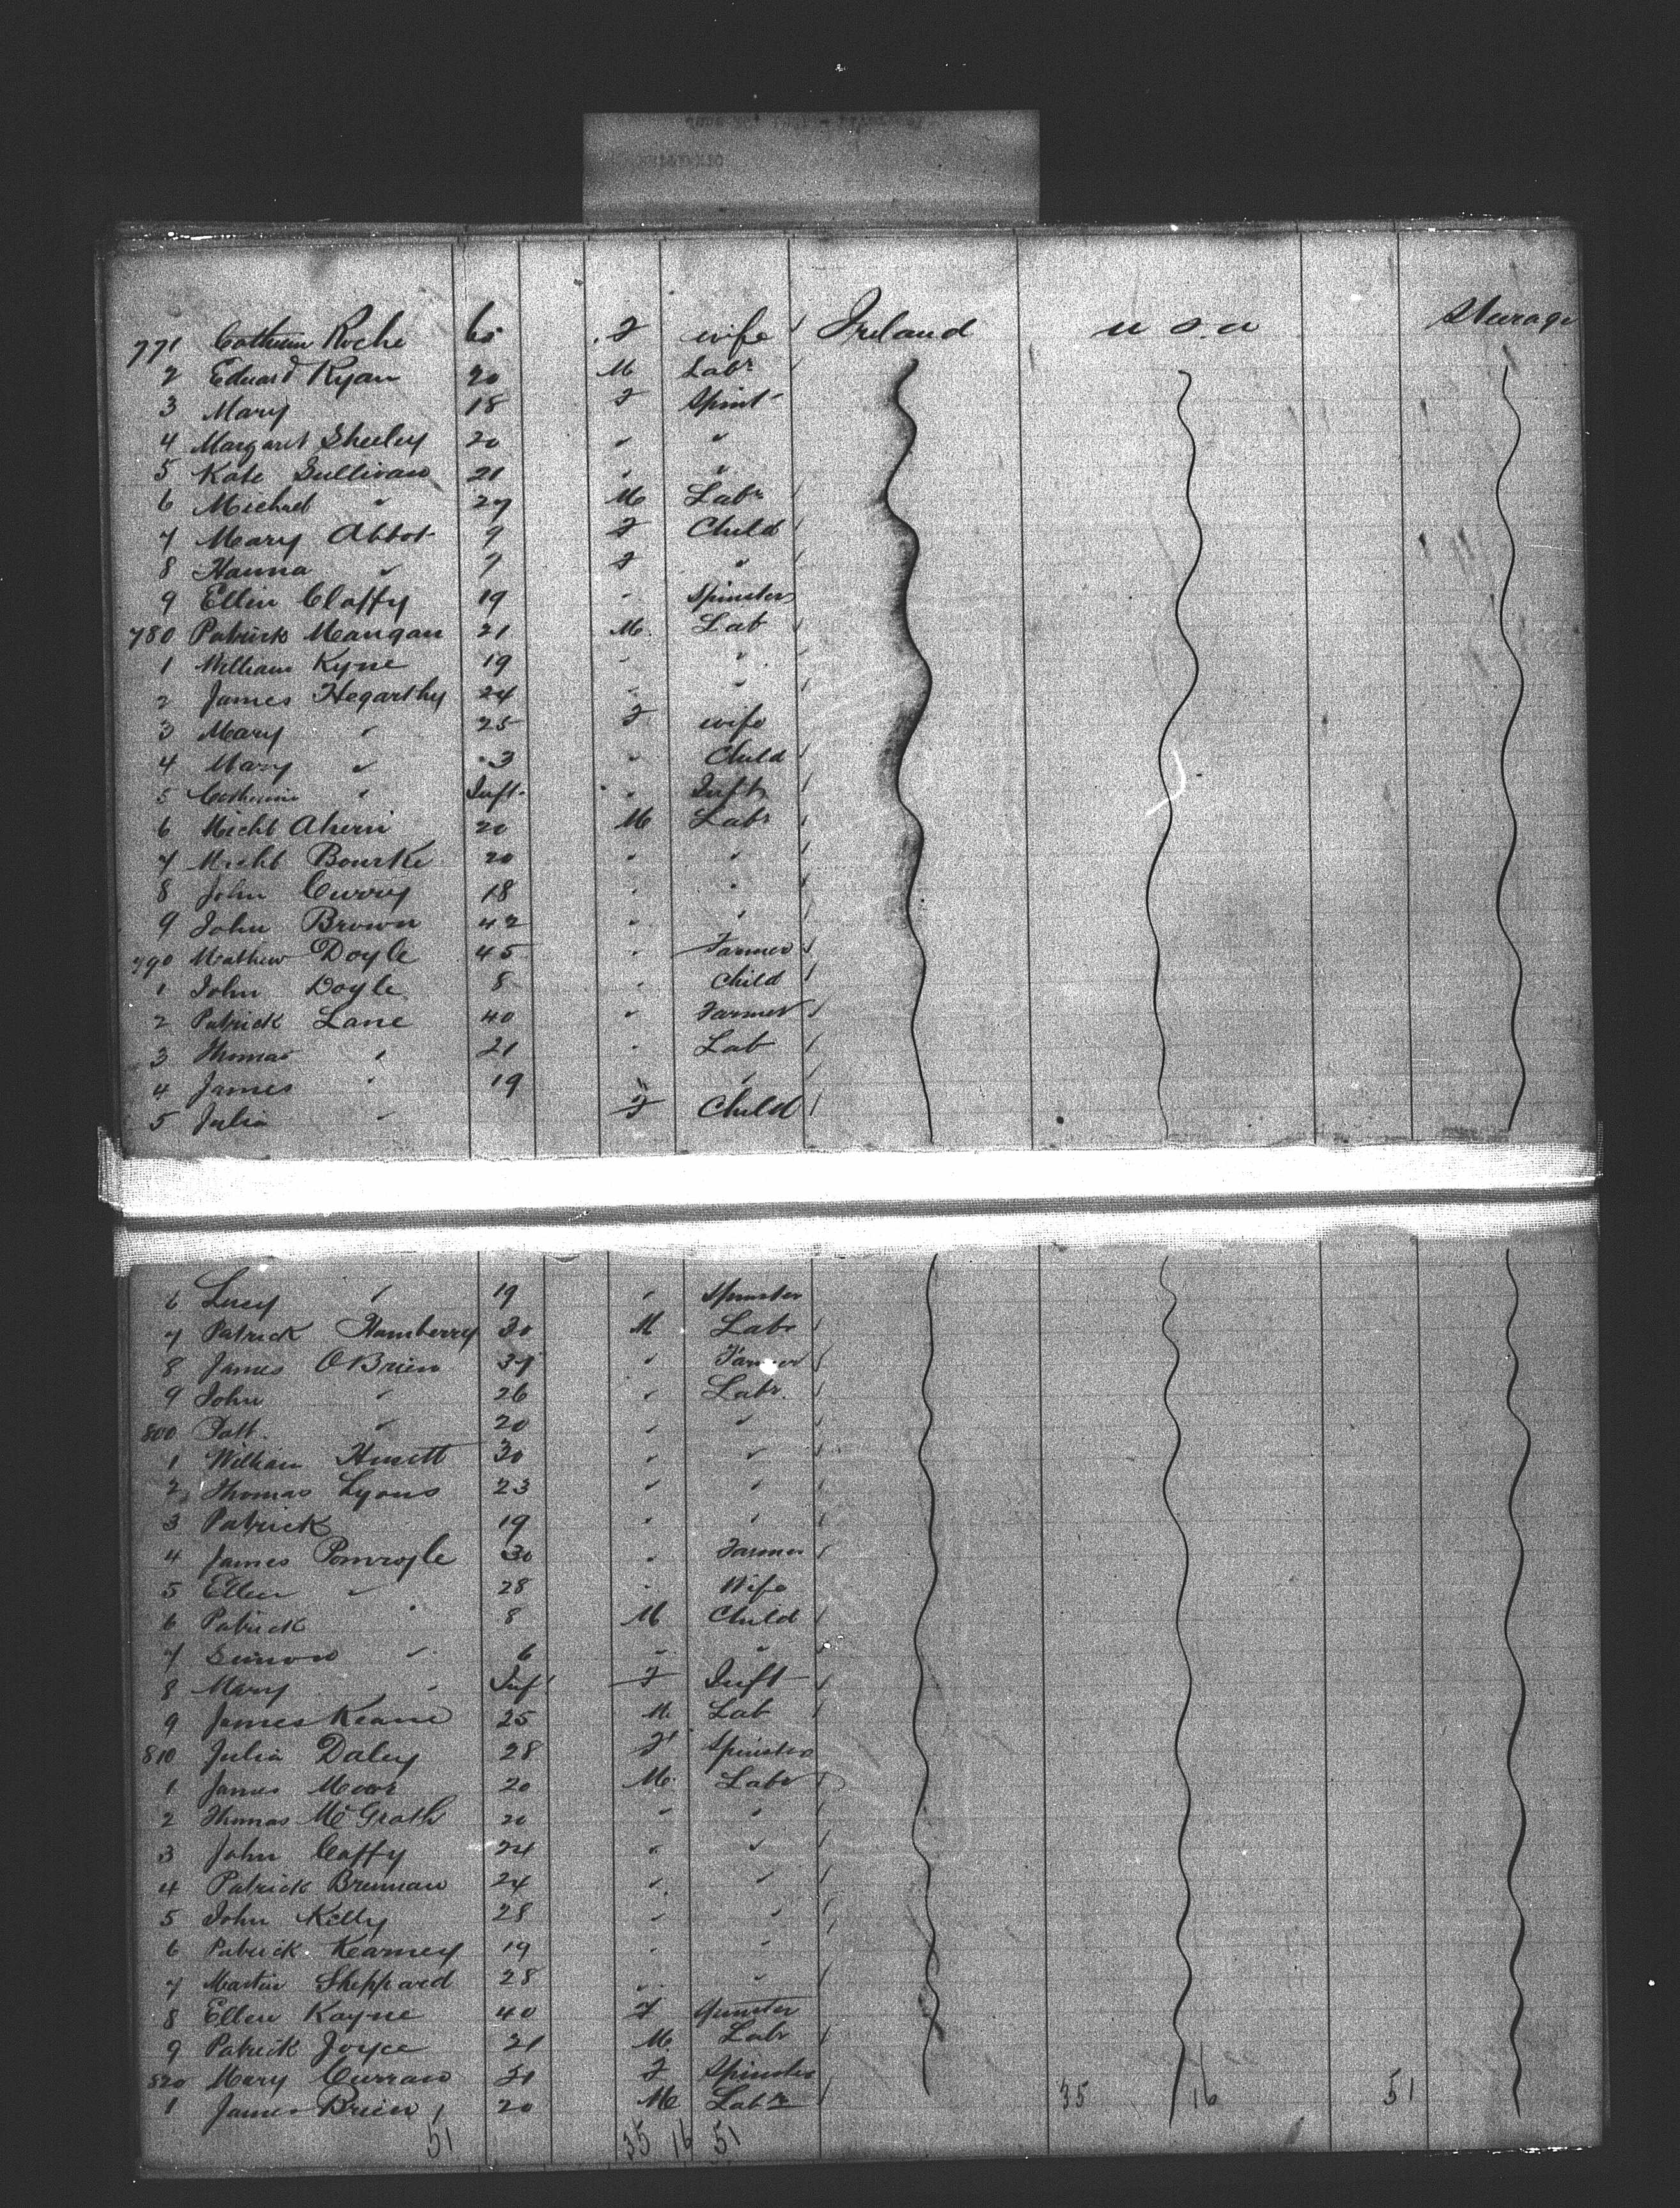 771 Catherine Roche 60 F wife Ireland U S A Steerage
2 Edward Ryan 20 M Labr
3 Mary 18 F Spinst
4 Margaret Sheeley 20 " "
5 Kate Sullivan 21 " "
6 Michael " 27 M Labr
7 Mary Abbot 9 F Child
8 Hanna " 7 F "
9 Ellen Claffy 19 " Spinster
780 Patrick Mangan 21 M Lab
1 William Kyne 19 " "
2 James Hegarthy 24 " "
3 Mary " 25 F wife
4 Mary " 3 " Child
5 Catherine " Inft " Inft
6 Michl Ahern 20 M Labr
7 Michl Bourke 20 " "
8 John Curry 18 " "
9 John Brown 42 " "
790 Mathew Doyle 45 " Farmer
1 John Doyle 8 " Child
2 Patrick Lane 40 " Farmer
3 Thomas " 21 " Lab
4 James " 19 " "
5 Julia " F Child
6 Lucy " 19 " Spinster
7 Patrick Hamberry 30 M Labr
8 James O'Brien " Farmer
9 John " 26 " Labr.
800 Patt. " 20 " "
1 William 30 " "
2 Thomas Lyons 23 " "
3 Patrick 19 " "
4 James Pomroyle 30 " Farmer
5 Ellen " 28 " Wife
6 Patrick " 8 M Child
7 Simon " 6 " "
8 Mary " Inf F Inft
9 James Keane 25 M Lab
810 Julia Daley 28 F Spinster
1 James Moore 20 M Labr
2 Thomas McGrath 20 " "
3 John Caffy 24 " "
4 Patrick Brennan 24 " "
5 John Kelly 28 " "
6 Patrick Kearney 19 " "
7 Martin Sheppard 28 " "
8 Ellen Kayne 40 F Spinster
9 Patrick Joyce 21 M Labr
820 Mary Curran 21 F Spinster
1 James Brien 20 M Labr 35 16 51
51 35 16 51